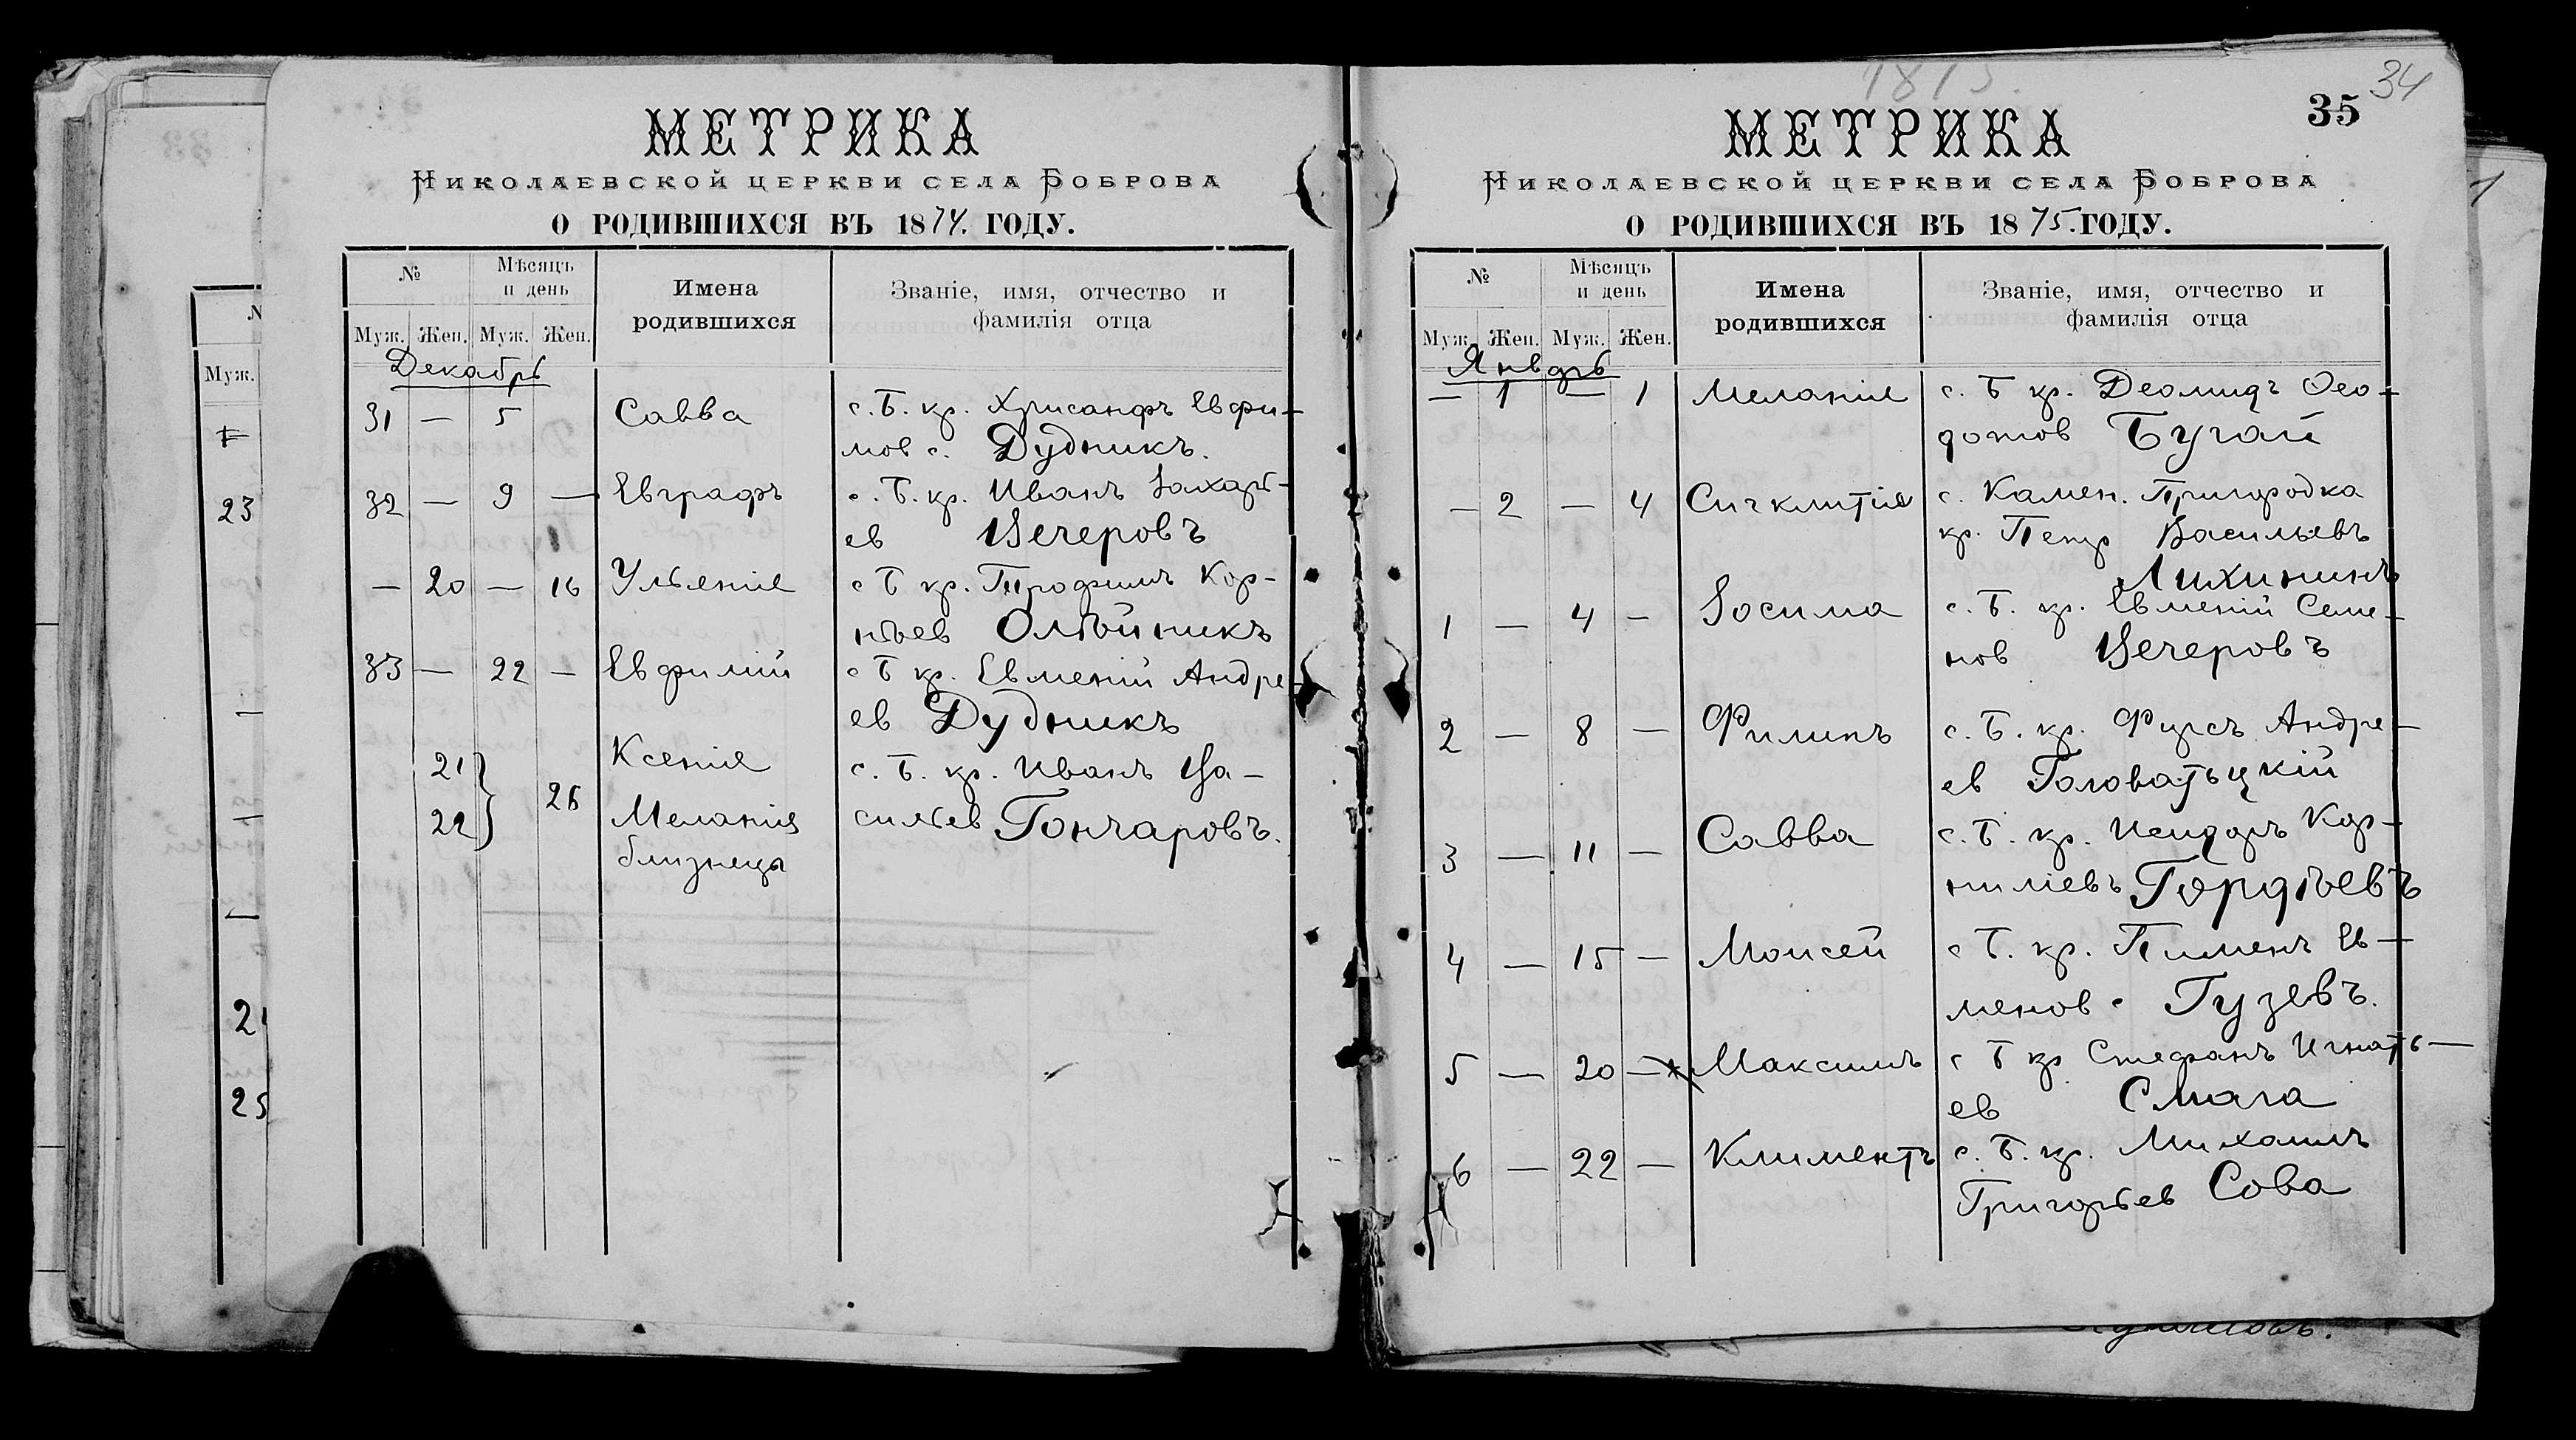 МЕТРИКА
НИКОЛАЕВСКОЙ ЦЕРКВИ СЕЛА БОБРОВА
О РОДИВШИХСЯ ВЪ 1874. ГОДУ.
№
Мѣсяцъ и день
Имена родившихся
Званіе, имя, отчество и фамилія отца
Муж. Жен. Муж. Жен.
Декабрь
31 — 5 Савва с. Б. кр. Хрисанфъ Евфи-
мов с. Дудникъ.
32 — 9 — Евграфъ с. Б. кр. Иванъ Захарь-
ев Вечеровъ
— 20 — 16 Ульянія с Б кр. Трофимъ Кор-
нѣев Олѣйникъ
33 — 22 — Евфимій с Б кр. Евменій Андре-
ев Дудникъ
21 22 } 26 Ксенія с. Б. кр. Иванъ Ва-
Меланія сильев Гончаровъ.
близнецы
Муж.
23
25
1875.
34
35
МЕТРИКА
НИКОЛАЕВСКОЙ ЦЕРКВИ СЕЛА БОБРОВА
О РОДИВШИХСЯ ВЪ 1875. ГОДУ.
№
Мѣсяцъ и день
Имена родившихся
Званіе, имя, отчество и фамилія отца
Муж. Жен. Муж. Жен.
Январь
— 1 — 1 Меланія с. Б кр. Деомидъ Ѳео-
дотов Бугай
— 2 — 4 Сигклитія с. Камен. Пригородка
кр. Петр Васильевъ
Лихининъ
1 — 4 — Зосима с. Б. кр. Евменій Семе-
нов Вечеровъ
2 — 8 — Филипъ с. Б. кр. Фирсъ Андре-
ев Головатьцкій
3 — 11 — Савва с. Б. кр. Исидоръ Кор-
ниліевъ Гордѣевъ
4 — 15 — Моисей с Б. кр. Пименъ Ев-
менов с Гузевъ.
5 — 20 — Максимъ с Б кр Стефанъ Игнать-
ев Смага
6 — 22 — Климентъ с. Б. кр. Михаилъ
Григорьев Сова